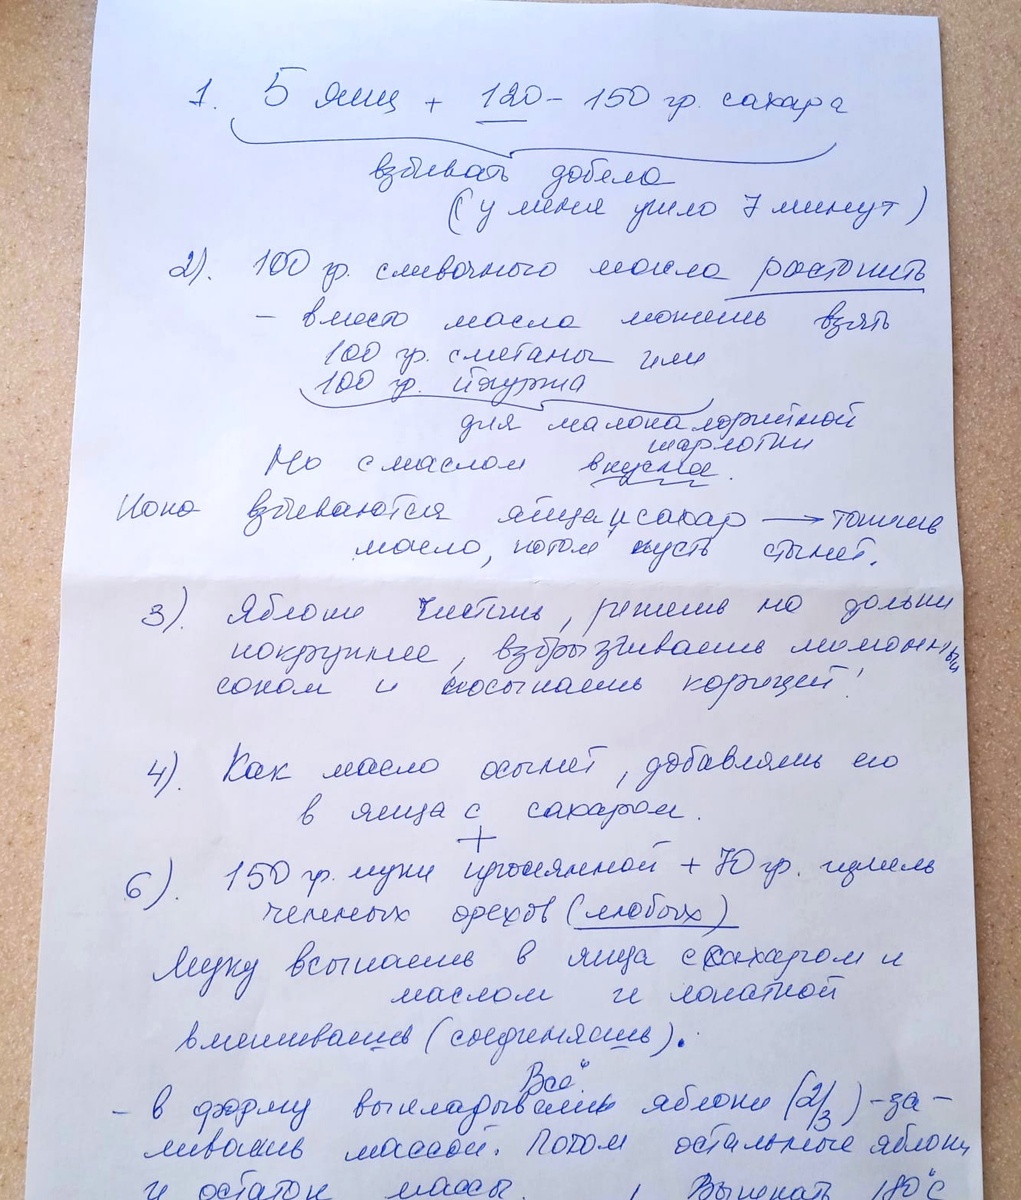 1. 5 яиц + 120 - 150 гр. сахара
взбивать добела
(у меня ушло 7 минут)
2). 100 гр. сливочного масла растопить
- вместо масла можешь взять
100 гр. сметаны или
100 гр. йогурта
для малокалорийной
шарлотки
Но с маслом вкуснее.
Пока взбиваются яйца и сахар → топишь
масло, потом пусть стынет.
3). Яблоки чистишь, режешь на дольки
покрупнее, взбрызгиваешь лимонным
соком и посыпаешь корицей!
4). Как масло остынет, добавляешь его
в яйца с сахаром.
+
6). 150 гр. муки просеянной + 70 гр. измель
ченных орехов (любых)
Муку всыпаешь в яйца с сахаром и
маслом и лопаткой
вмешиваешь (соединяешь).
"Всё"
- в форму выкладываешь яблоки (2/3) - за-
ливаешь массой. Потом остальные яблоки
и остаток массы. Выпекать 180°С